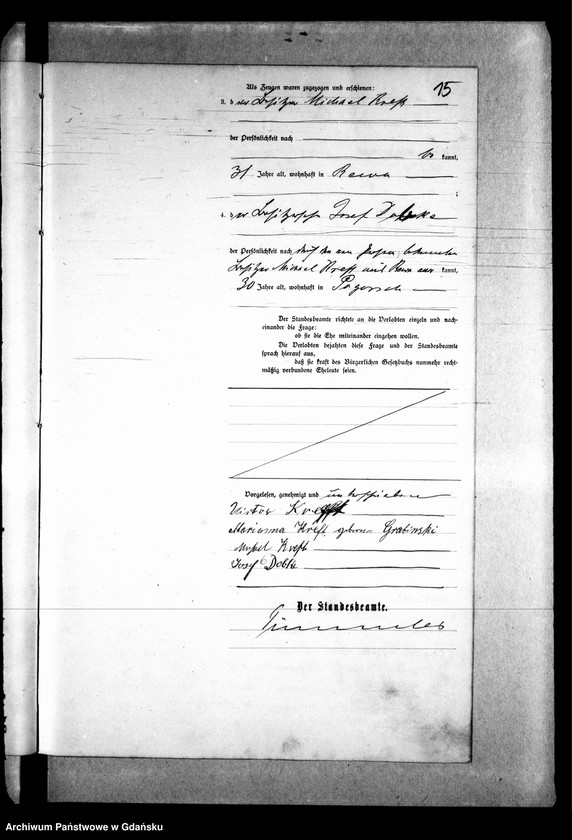 15
Als Zeugen waren zugezogen und erschienen:
3. der Besitzer Michael Kreft
der Persönlichkeit nach
be kannt,
31 Jahre alt, wohnhaft in Rewa
;
4. der Josef Dobke
der Persönlichkeit nach durch den
Besitzer Michael Kreft aus Rewa kannt,
30 Jahre alt, wohnhaft in Pogorsch
Der Standesbeamte richtete an die Verlobten einzeln und nach-
einander die Frage:
ob sie die Ehe miteinander eingehen wollen.
Die Verlobten bejahten diese Frage und der Standesbeamte
sprach hierauf aus,
daß sie kraft des Bürgerlichen Gesetzbuchs nunmehr recht-
mäßig verbundene Eheleute seien.
Vorgelesen, genehmigt und unterschrieben
Victor Kreft
Marianna Kreft geborene Grabinski
Michel Kreft
Josef Dobke
Der Standesbeamte.
Archiwum Państwowe w Gdańsku